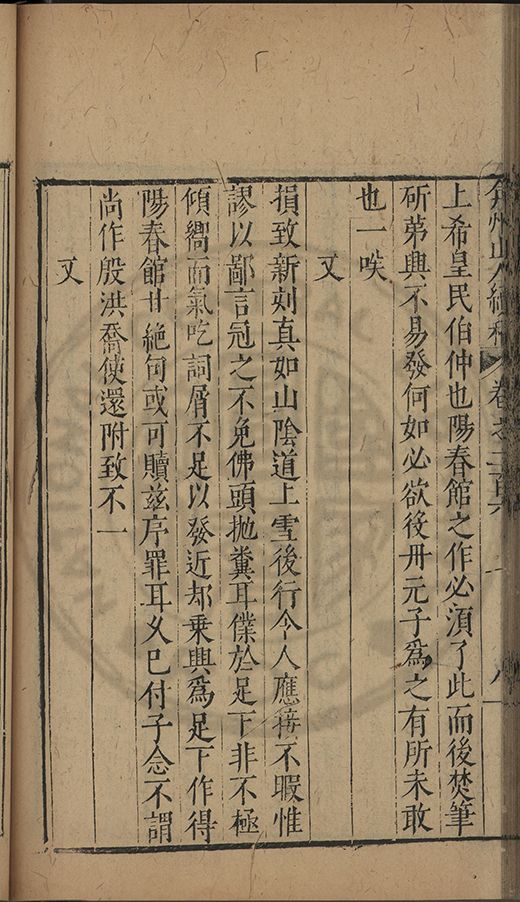 弇州山人續稿 卷之二百六 八
上希皇民伯仲也陽春館之作必湏了此而後焚筆
斫苐興不易發何如必欲後冊元子爲之有所未敢
也一咲
又
損致新刻真如山陰道上雪後行令人應接不暇惟
謬以鄙言冠之不免佛頭抛糞耳僕於足下非不極
傾嚮而氣吃詞屑不足以發近却乗興爲足下作得
陽春館廿絶句或可贖兹序罪耳乂巳付子念不謂
尚作殷洪喬使還附致不一
又